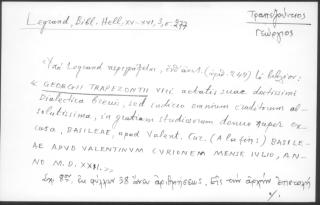 Legrand, Bibl. Hell. XV-XVI, 3, σ. 277
Τραπεζούντιος
Γεώργιος
Ὑπὸ Legrand περιγράφεται, ὑπ' ἀριθ. (ἀριθ. 249) τὸ βιβλίον:
« GEORGII TRAPEZONTII viri aetatis suae doctissimi
Dialectica brevis, sed iudicio omnium eruditorum ab-
solutissima, in gratiam studiosorum denuo nuper ex-
cusa, BASILEAE, apud Valent. Cur. (A la fin :) BASILE-
AE APUD VALENTINUM CURIONEM MENSE IULIO, AN-
NO M. D. XXII. »
Σχ. 8ον, ἐκ φύλλων 58 ἄνευ ἀριθμήσεως. Εἰς τὴν ἀρχὴν ἐπιστολὴ